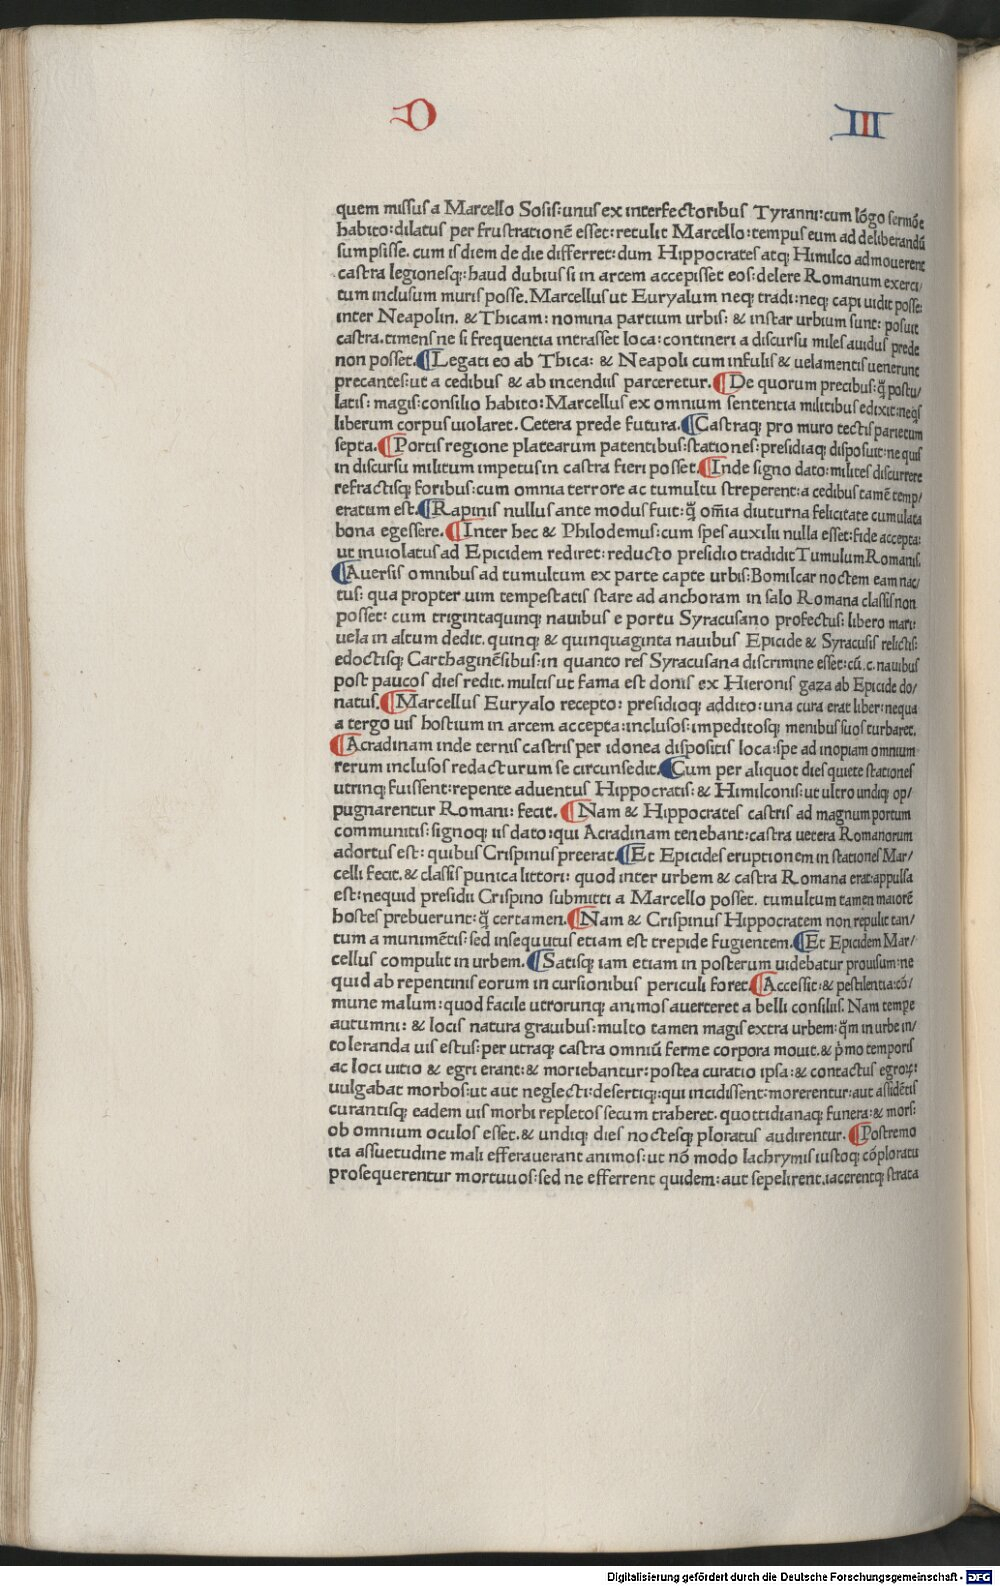 D III
quem missus a Marcello Sosis: unus ex interfectoribus Tyranni: cum lõgo sermõe
habito: dilatus per frustrationẽ esset: retulit Marcello: tempus eum ad deliberandũ
sumpsisse. cum is diem de die differret: dum Hippocrates atqꝫ Himilco admouerent
castra legionesqꝫ: haud dubius si in arcem accepisset eos: delere Romanum exerci/
tum inclusum muris posse. Marcellus ut Euryalum neqꝫ tradi: neqꝫ capi uidit posse:
inter Neapolin. & Thicam: nomina partium urbis: & instar urbium sunt: posuit
castra. timens ne si frequentia intrasset loca: contineri a discursu miles auidus prede
non posset. ¶Legati eo ab Thica: & Neapoli cum infulis & uelamentis uenerunt
precantes: ut a cedibus & ab incendiis parceretur. ¶De quorum precibus: q̃ postu/
latis: magis: consilio habito: Marcellus ex omnium sententia militibus edixit: neqs
liberum corpus uiolaret. Cetera prede futura. ¶Castraqꝫ pro muro tectis parietum
septa. ¶Portis regione platearum patentibus: stationes: presidiaqꝫ disposuit: ne quis
in discursu militum impetus in castra fieri posset. ¶Inde signo dato: milites discurrere
refractisqꝫ foribus: cum omnia terrore ac tumultu streperent: a cedibus tamẽ temp/
eratum est. ¶Rapinis nullus ante modus fuit: q̃ om̃ia diuturna felicitate cumulata
bona egessere. ¶Inter hec & Philodemus: cum spes auxilii nulla esset: fide accepta:
ut inuiolatus ad Epicidem rediret: reducto presidio tradidit Tumulum Romanis.
¶Auersis omnibus ad tumultum ex parte capte urbis: Bomilcar noctem eam nac/
tus: qua propter uim tempestatis stare ad anchoram in salo Romana classis non
posset: cum trigintaquinqꝫ nauibus e portu Syracusano profectus: libero mari:
uela in altum dedit. quinqꝫ & quinquaginta nauibus Epicide & Syracusis relictis:
edoctisqꝫ Carthaginẽsibus: in quanto res Syracusana discrimine esset: cũ. c. nauibus
post paucos dies redit. multis ut fama est donis ex Hieronis gaza ab Epicide do/
natus. ¶Marcellus Euryalo recepto: presidioqꝫ addito: una cura erat liber: nequa
a tergo uis hostium in arcem accepta: inclusos: impeditosqꝫ menibus suos turbaret.
¶Acradinam inde ternis castris per idonea dispositis loca: spe ad inopiam omnium
rerum inclusos redacturum se circunsedit. ¶Cum per aliquot dies quiete stationes
utrinqꝫ fuissent: repente aduentus Hippocratis: & Himilconis: ut ultro undiqꝫ op/
pugnarentur Romani: fecit. ¶Nam & Hippocrates castris ad magnum portum
communitis: signoqꝫ iis dato: qui Acradinam tenebant: castra uetera Romanorum
adortus est: quibus Crispinus preerat. ¶Et Epicides eruptionem in stationes Mar/
celli fecit. & classis punica littori: quod inter urbem & castra Romana erat: appulsa
est: nequid presidii Crispino submitti a Marcello posset. tumultum tamen maiorẽ
hostes prebuerunt: q̃ certamen. ¶Nam & Crispinus Hippocratem non repulit tan/
tum a munimẽtis: sed insequutus etiam est trepide fugientem. ¶Et Epicidem Mar/
cellus compulit in urbem. ¶Satisqꝫ iam etiam in posterum uidebatur prouisum: ne
quid ab repentinis eorum in cursionibus periculi foret. ¶Accessit: & pestilentia: cõ/
mune malum: quod facile utrorunqꝫ animos auerteret a belli consiliis. Nam tempe
autumni: & locis natura grauibus: multo tamen magis extra urbem: q̃m in urbe in/
toleranda uis estus: per utraqꝫ castra omniũ ferme corpora mouit. & p̃mo temporis
ac loci uitio & egri erant: & moriebantur: postea curatio ipsa: & contactus egroꝝ:
uulgabat morbos: ut aut neglecti: desertiqꝫ: qui incidissent: morerentur: aut assidẽtis
curantisqꝫ eadem uis morbi repletos secum traheret. quottidianaqꝫ funera: & mors:
ob omnium oculos esset. & undiqꝫ dies noctesqꝫ ploratus audirentur. ¶Postremo
ita assuetudine mali efferauerant animos: ut nõ modo lachrymis iustoqꝫ cõploratu
prosequerentur mortuuos: sed ne efferrent quidem: aut sepelirent. iacerentqꝫ strata
Digitalisierung gefördert durch die Deutsche Forschungsgemeinschaft - DFG